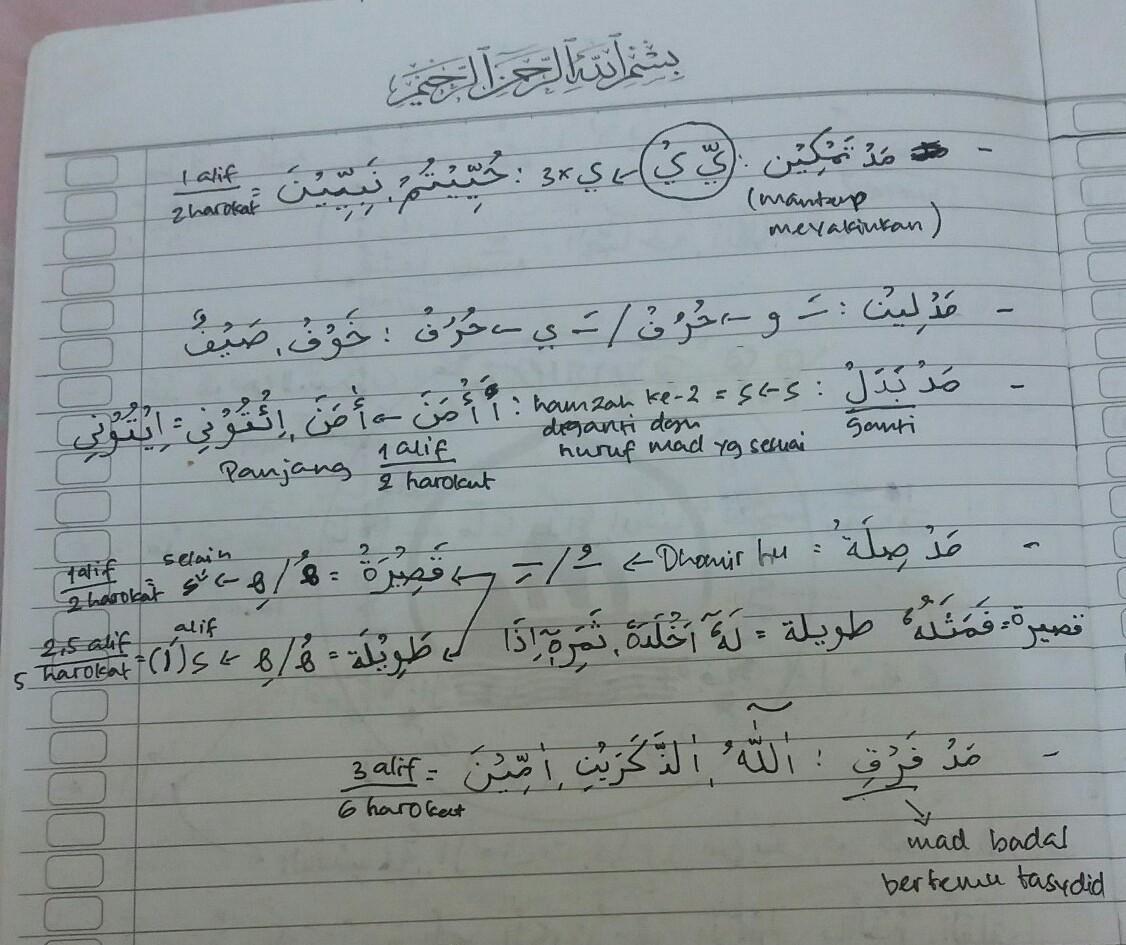 بِسْمِ ٱللَّهِ ٱلرَّحْمَٰنِ ٱلرَّحِيمِ
- مَدْ تَمْكِيْن : يِّ يْ ← ي 3x : حُيِّيْتُمْ، نَبِيِّيْنَ = 1 alif / 2 harokat
(mantap meyakinkan)
- مَدْ لِيْن : ـَ و ← حُرُفْ / ـَ ي ← حُرُفْ : خَوْفُ، صَيْفٌ
- مَدْ بَدَلْ : ء ← ء = hamzah ke-2 diganti dgn huruf mad yg sesuai : أَأْمَنَ ← أمَنَ، اِئْتُوْنِي = اِيْتُوْنِي
ganti
Panjang 1 alif / 2 harokat
- مَدْ صِلَةْ = Dhomir hu ← ـُ / ـِ ← قَصِيْرَةْ = هُ / هِ ← selain ء = 1 alif / 2 harokat
طَوِيْلَةْ = هُ / هِ ← ء (أ) alif = 2,5 alif / 5 harokat
قصيرة = فَمَثَلُهُ طويلة = لَهُٓ أَخْلَدَهُ، ثَمَرِهِٓ إِذَا
- مَدْ فَرْقِ : آللّٰهُ، الذَّكَرَيْنِ، اٰمِّيْنَ = 3 alif / 6 harokat
mad badal
bertemu tasydid